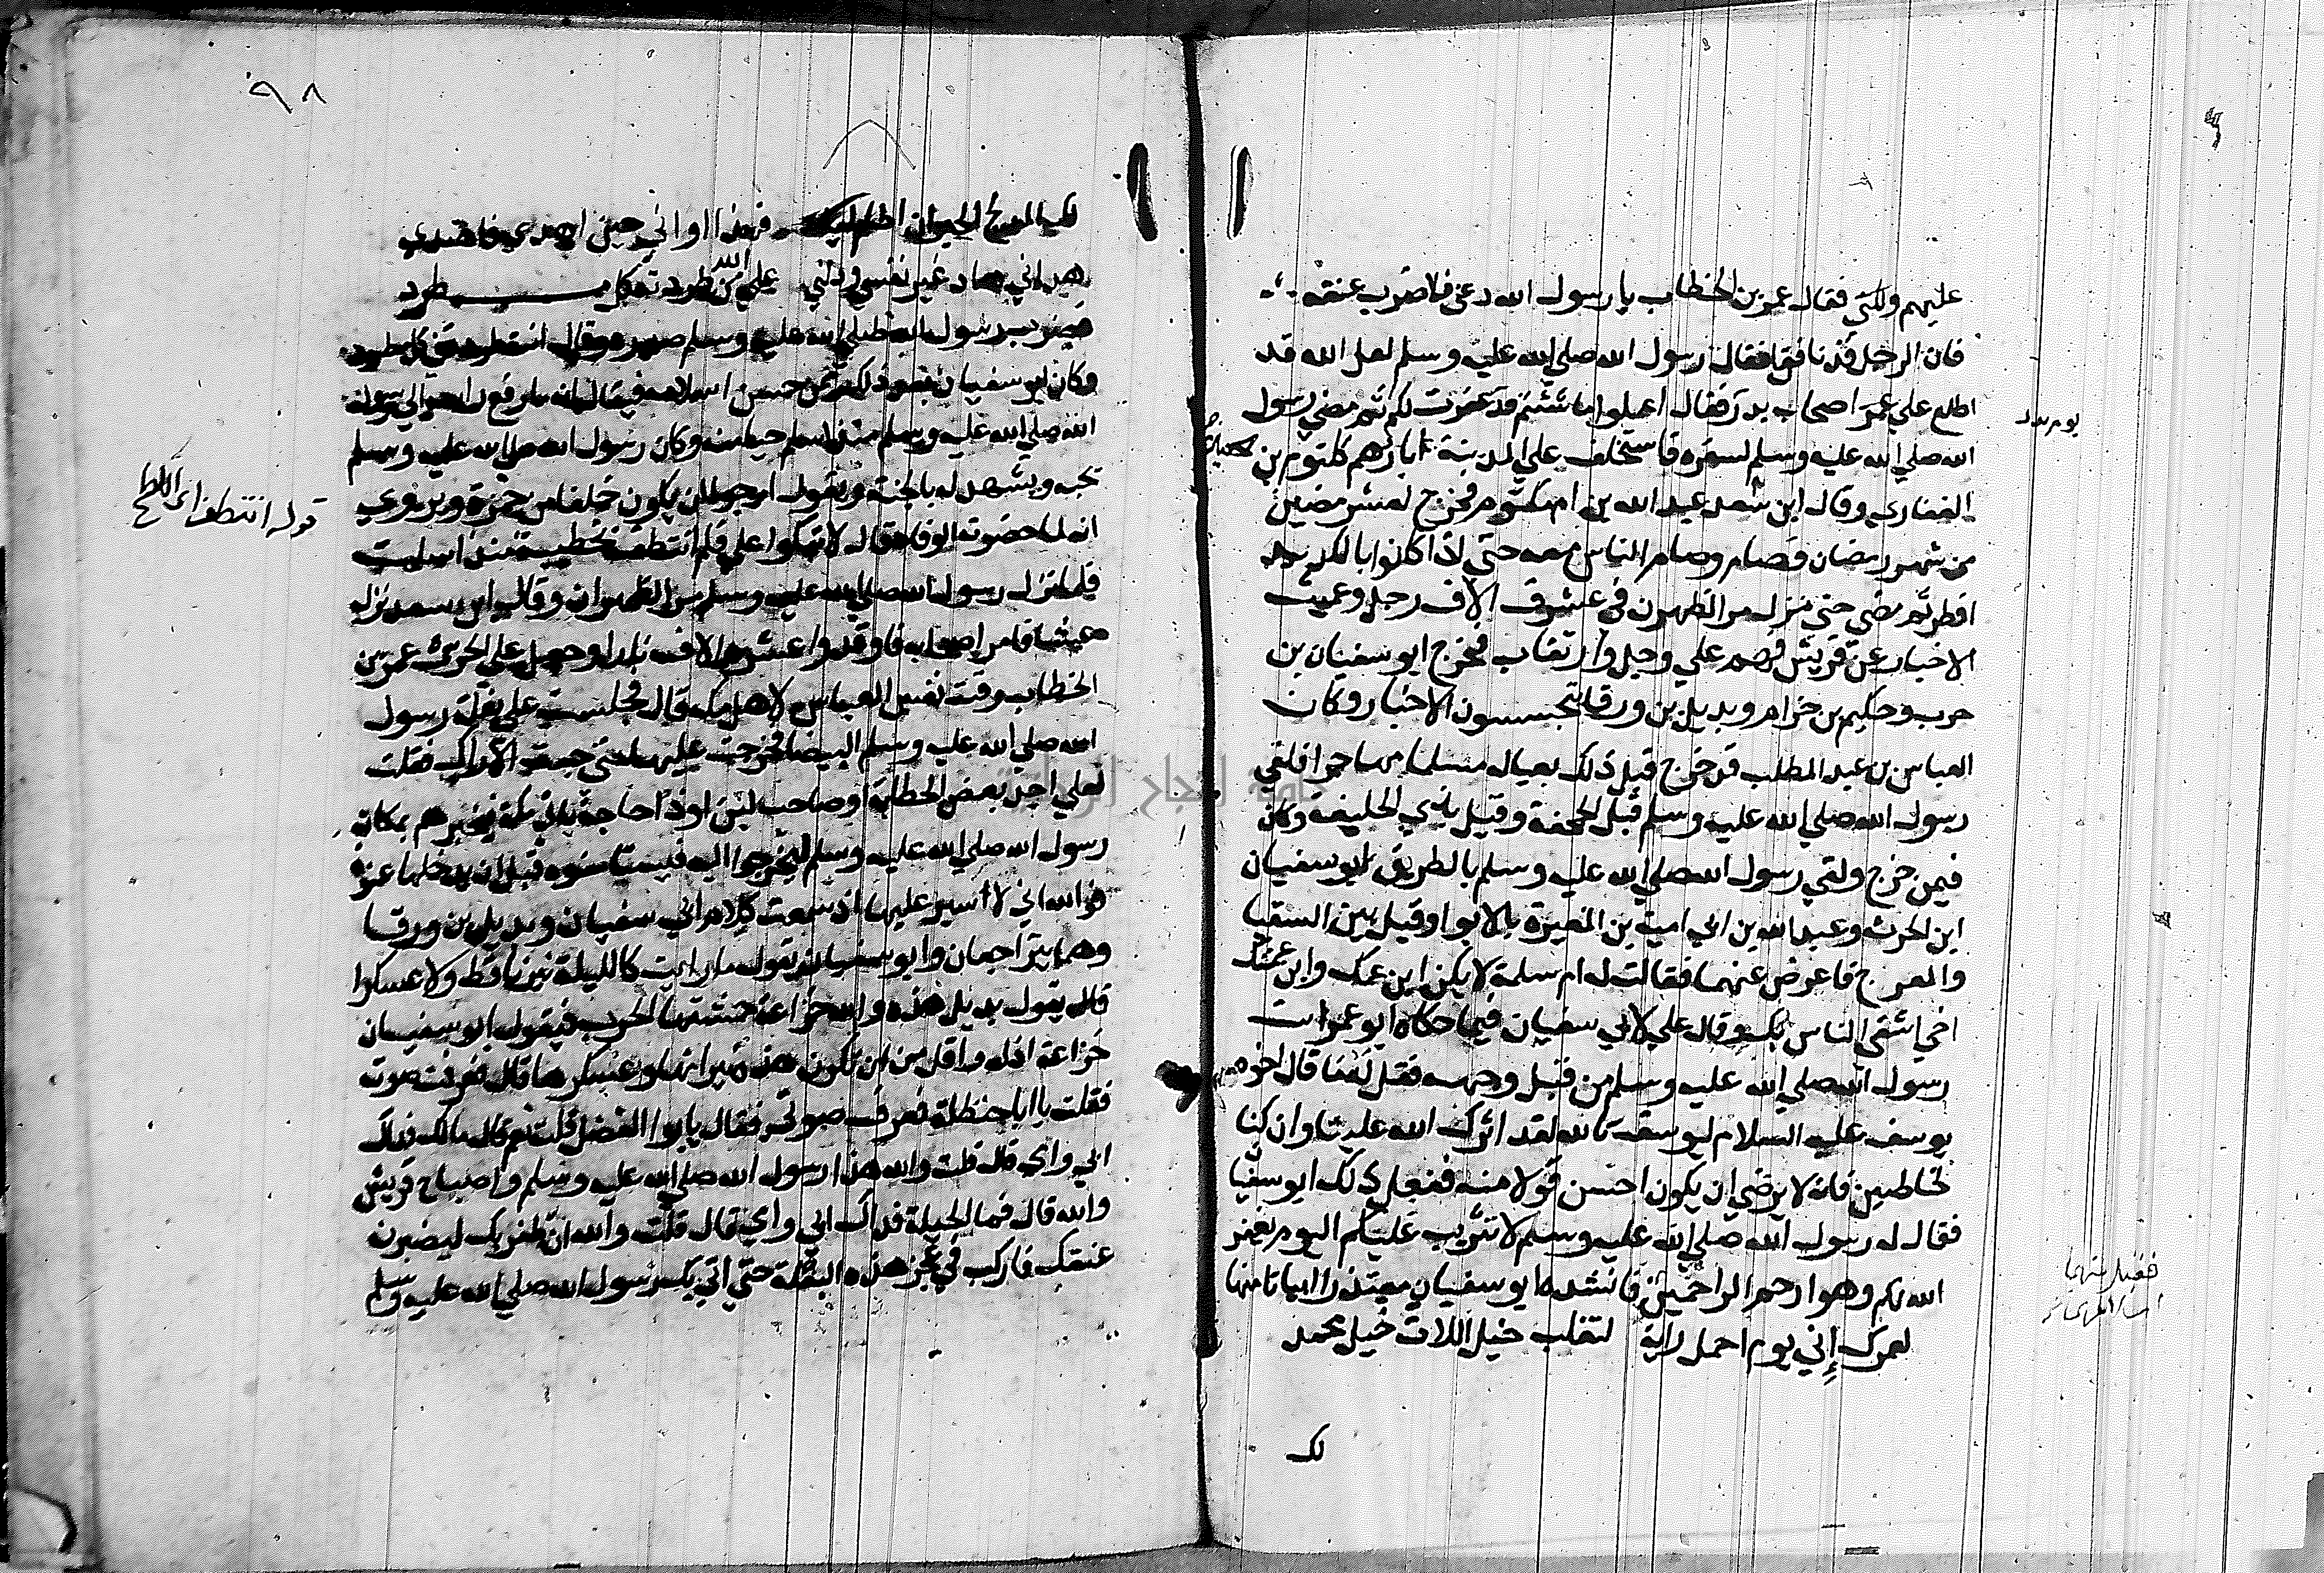 عليهم ولكني فقال عمر بن الخطاب يا رسول الله دعني فلاضرب عنقه
فان الرجل قد نافق فقال رسول الله صلي الله عليه وسلم لعل الله قد
اطلع علي عمر اصحاب بدر فقال اعملوا ما شئتم قد غفرت لكم ثم مضي رسول
يوم بدر
الله صلي الله عليه وسلم لسفره فاستخلف علي المدينة ابا رهم كلثوم بن
الغفاري وقال ابن سعد عبد الله بن ام مكتوم فخرج لعشر مضين
من شهر رمضان فصام وصام الناس معه حتي اذا كانوا بالكديد
افطر ثم مضي حتي نزل مر الظهران في عشرة الاف رجل وعميت
الاخبار عن قريش فهم علي وجل وارتقاب فخرج ابو سفيان بن
حرب وحكيم بن حزام وبديل بن ورقا يتحسسون الاخبار وكان
العباس بن عبد المطلب قد خرج قبل ذلك بعياله مسلما مهاجرا فلقي
رسول الله صلي الله عليه وسلم قبل الجحفة وقيل بذي الحليفه وكان
فيمن خرج ولقي رسول الله صلي الله عليه وسلم بالطريق ابو سفيان
ابن الحرث وعبد الله بن ابي امية بن المغيرة بالابوا وقيل بين السقيا
والعرج فاعرض عنهما فقالت له ام سلمة لا يكن ابن عمك وابن عمتك
اخي اشقي الناس بك وقال علي لابي سفيان فيما حكاه ابو عمر ات
رسول الله صلي الله عليه وسلم من قبل وجهه فقل له ما قال اخوه
يوسف عليه السلام ليوسف تالله لقد اثرك الله علينا وان كنا
لخاطيين فانه لا يرضي ان يكون احسن قولا منه ففعل ذلك ابو سفيا
فقال له رسول الله صلي الله عليه وسلم لا تثريب عليكم اليوم يغفر
الله لكم وهو ارحم الراحمين فانشده ابو سفيان معتذرا ابياتا منها
فقبل منهما
لعمرك إني يوم احمل راية لتغلب خيل اللات خيل محمد
لك
٩٨
لك المدلج الحيران اظلم ليله فهذا اواني حين اهدي فاهتدي
هداني هاد غير نفسي ودلني علي الله من طردت كل مطرد
فضرب رسول الله صلي الله عليه وسلم صدره وقال انت طردتني كل مطرد
وكان ابو سفيان بعد ذلك ممن حسن اسلامه فيقال انه ما رفع راسه الي رسول
الله صلي الله عليه وسلم منذ اسلم حيا منه وكان رسول الله صلي الله عليه وسلم
يحبه ويشهد له بالجنة ويقول ارجوا ان يكون خلفا من حمزة ويروي
انه لما حضرته الوفاة قال لا تبكوا علي فلم انتطف بخطيية منذ اسلمت
قوله انتطف اي اتلطخ
فلما نزل رسول الله صلي الله عليه وسلم مر الظهران وقال ابن سعد نزله
عشا فامر اصحابه فاوقدوا عشرة الاف نار وجعل علي الحرس عمر بن
الخطاب رقت نفس العباس لاهل مكة قال فجلست علي بغلة رسول
الله صلي الله عليه وسلم البيضا فخرجت عليها حتي جيت الاراك فقلت
لعلي اجد بعض الحطابة او صاحب لبن او ذا حاجة ياتي مكة فيخبرهم بمكان
رسول الله صلي الله عليه وسلم ليخرجوا اليه فيستامنوه قبل ان يدخلها عنوة
فوالله اني لا اسير عليها اذ سمعت كلام ابي سفيان وبديل بن ورقا
وهما يتراجعان وابو سفيان يقول ما رايت كالليلة نيرانا قط ولا عسكرا
قال يقول بديل هذه والله خزاعة حمشتها الحرب فيقول ابو سفيان
خزاعة اذل واقل من ان تكون هذه نيرانها وعسكرها قال فعرفت صوته
فقلت يا ابا حنظلة فعرف صوتي فقال يا ابو الفضل قلت نعم قال مالك فداك
ابي وامي قال قلت والله هذا رسول الله صلي الله عليه وسلم واصباح قريش
والله قال فما الحيلة فداك ابي وامي قال قلت والله ان ظفر بك ليضربن
عنقك فاركب في عجز هذه البغلة حتي اتي بك رسول الله صلي الله عليه وسلم